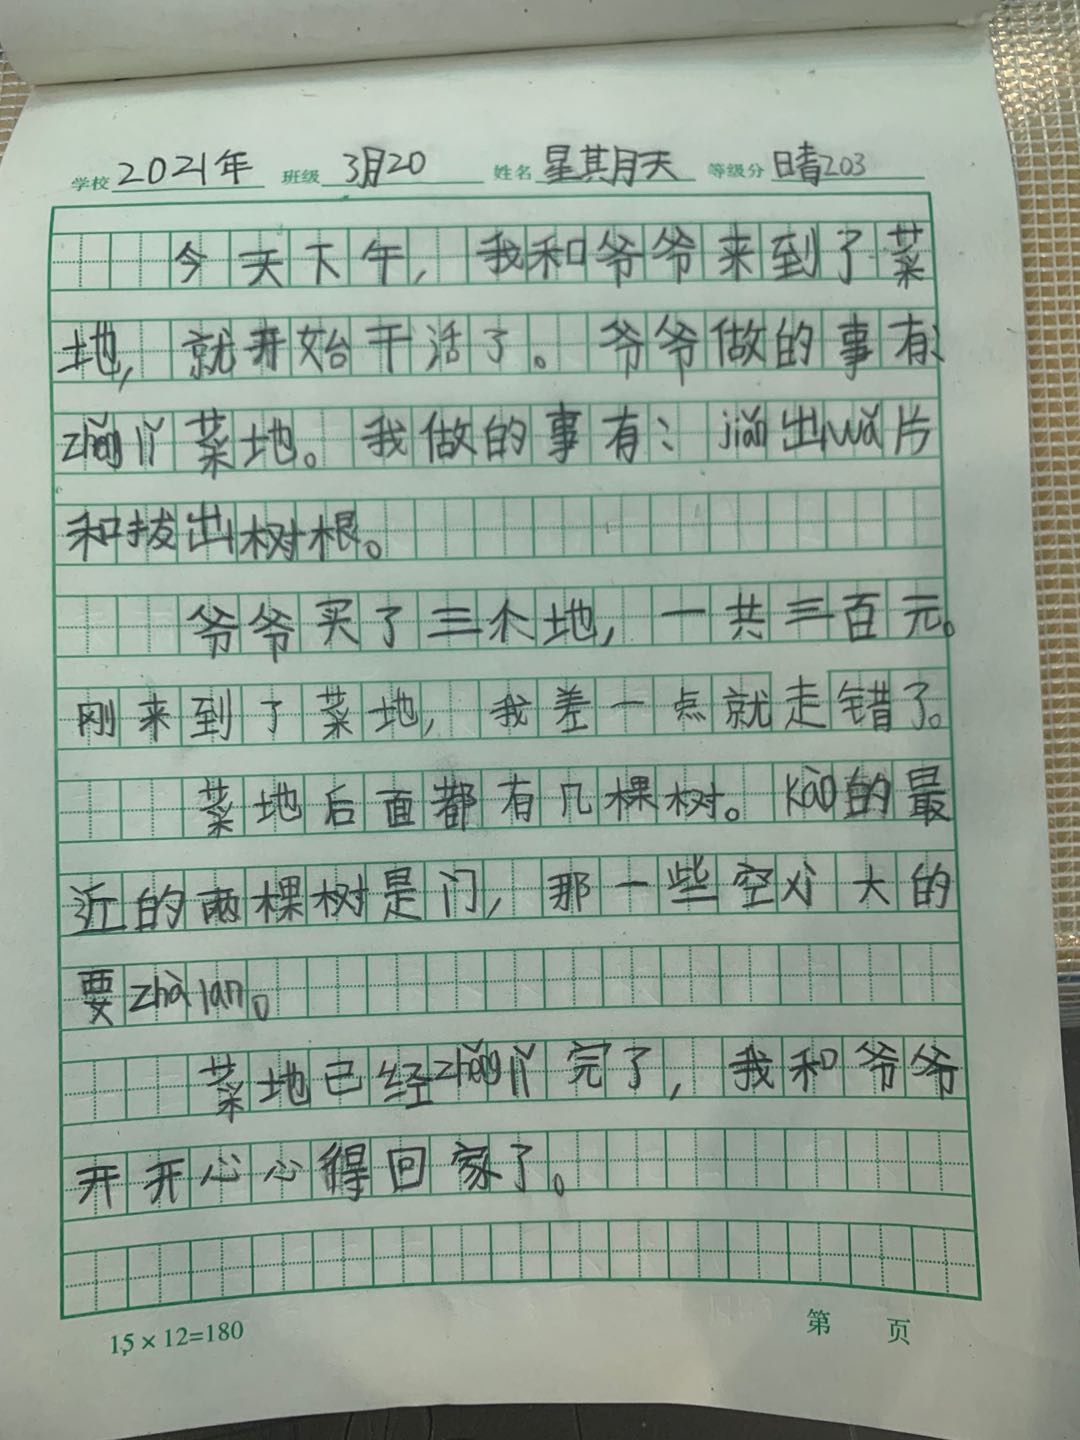 学校 2021年 班级 3月20 姓名 星其月天 等级分 晴203
今天下午，我和爷爷来到了菜
地，就开始干活了。爷爷做的事有：
zhěng lǐ 菜地。我做的事有：jiǎn出wǎ片
和拔出树根。
爷爷买了三个地，一共三百元。
刚来到了菜地，我差一点就走错了。
菜地后面都有几棵树。kào的最
近的两棵树是门，那一些空心大的
要zhà lan。
菜地已经zhěng lǐ完了，我和爷爷
开开心心得回家了。
15×12=180
第 页